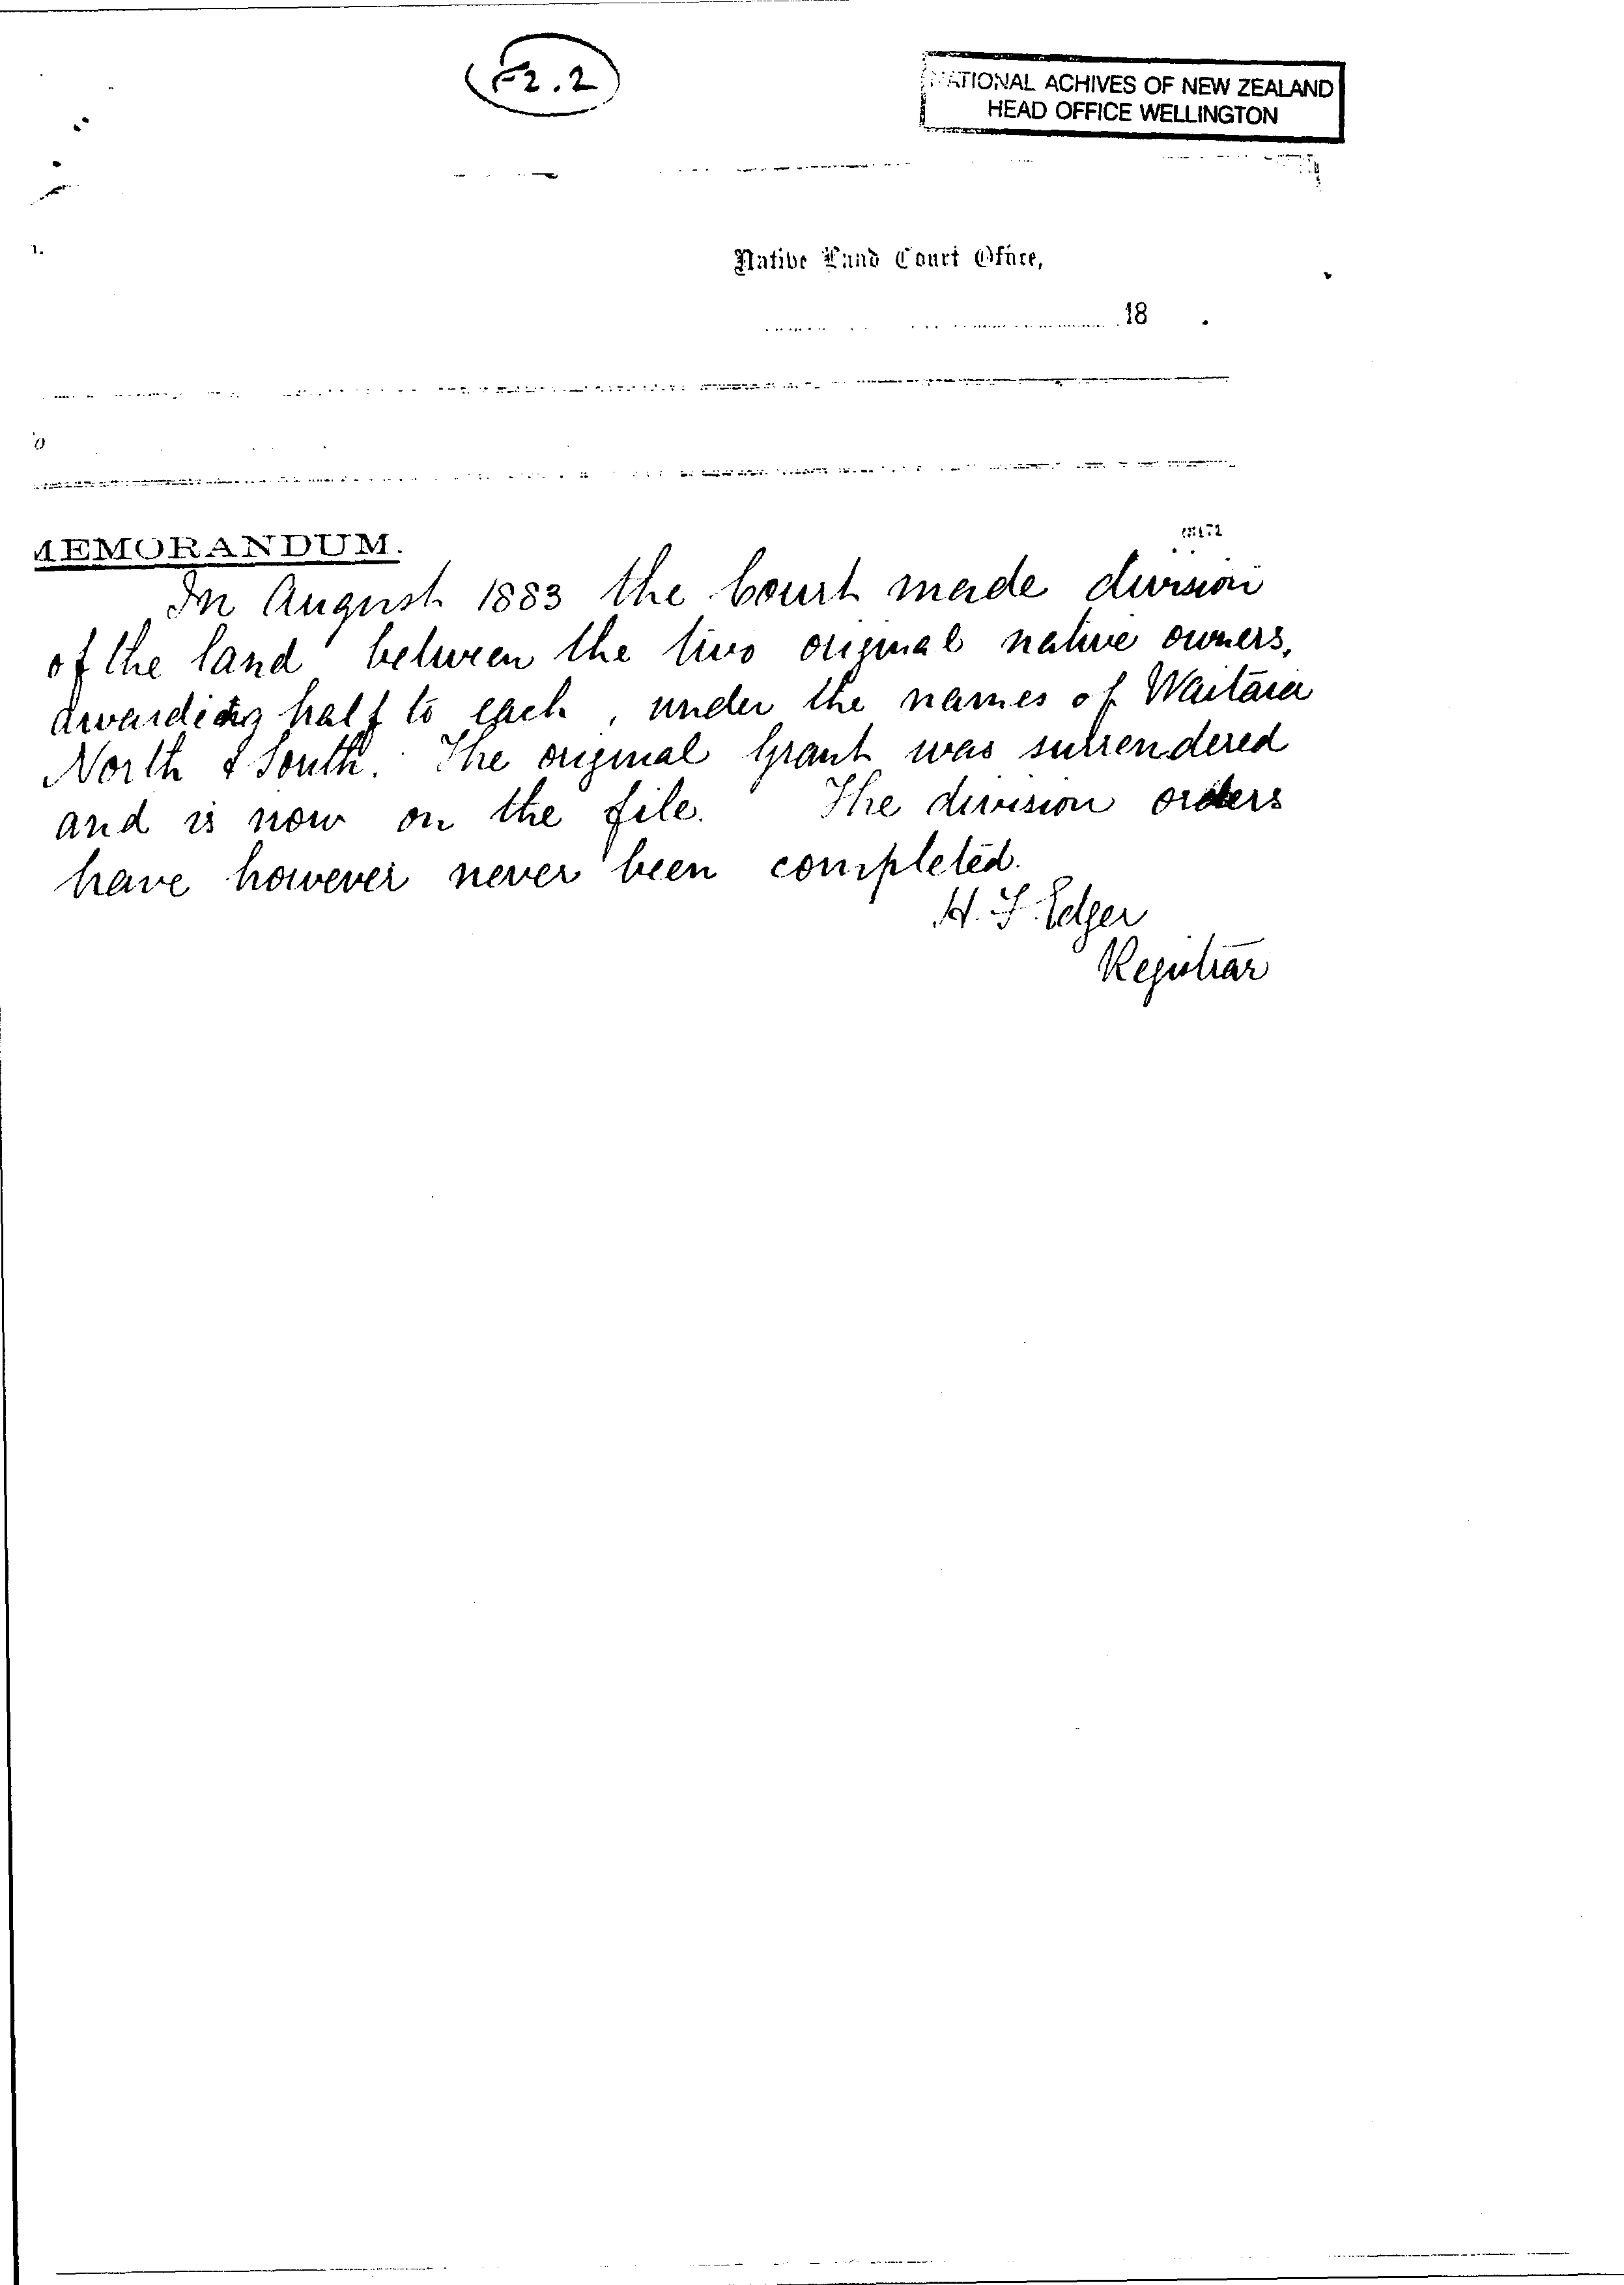 F2.2
NATIONAL ACHIVES OF NEW ZEALAND
HEAD OFFICE WELLINGTON
Native Land Court Office,
18 .
MEMORANDUM.
In August 1883 the Court made division
of the land between the two original native owners,
awarding half to each, under the names of Waitara
North & South. The original Grant was surrendered
and is now on the file. The division orders
have however never been completed.
H. F. Edger
Registrar